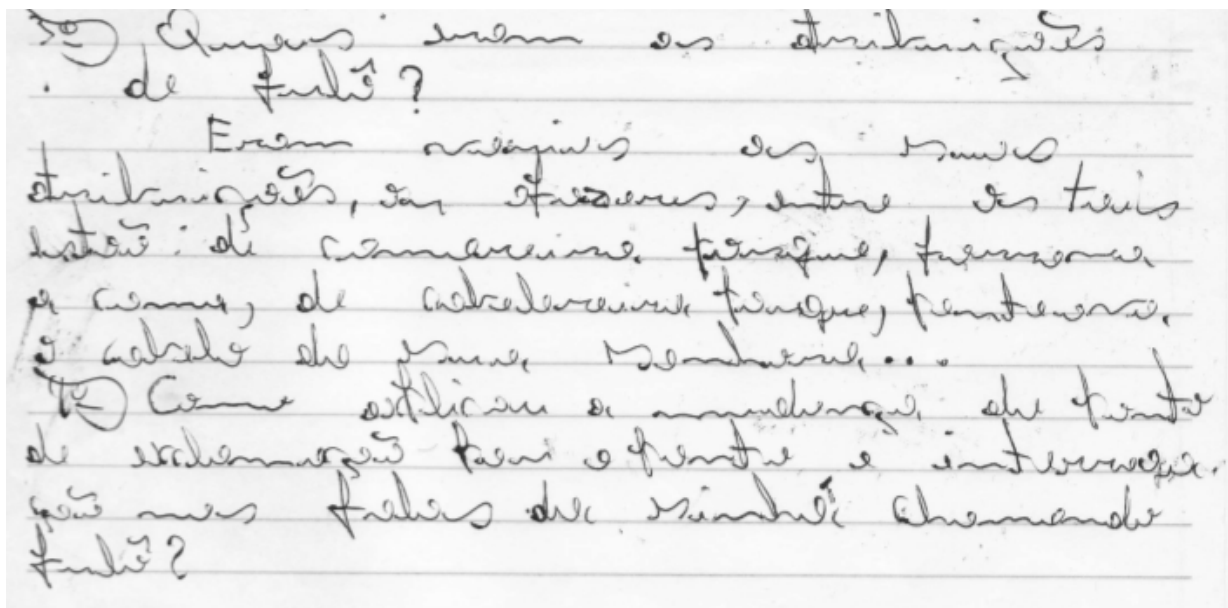 3º) Quais eram as atribuições
de Fulô?
Eram várias as suas
atribuições, ou afazeres, entre as tais
estão: de
a cama, de cabeleireira porque, penteava
o cabelo de sua senhora...
Como a mudança de ponto
de exclamação o ponto e interroga-
ção nas falas da Sinhá chamando
Fulô?